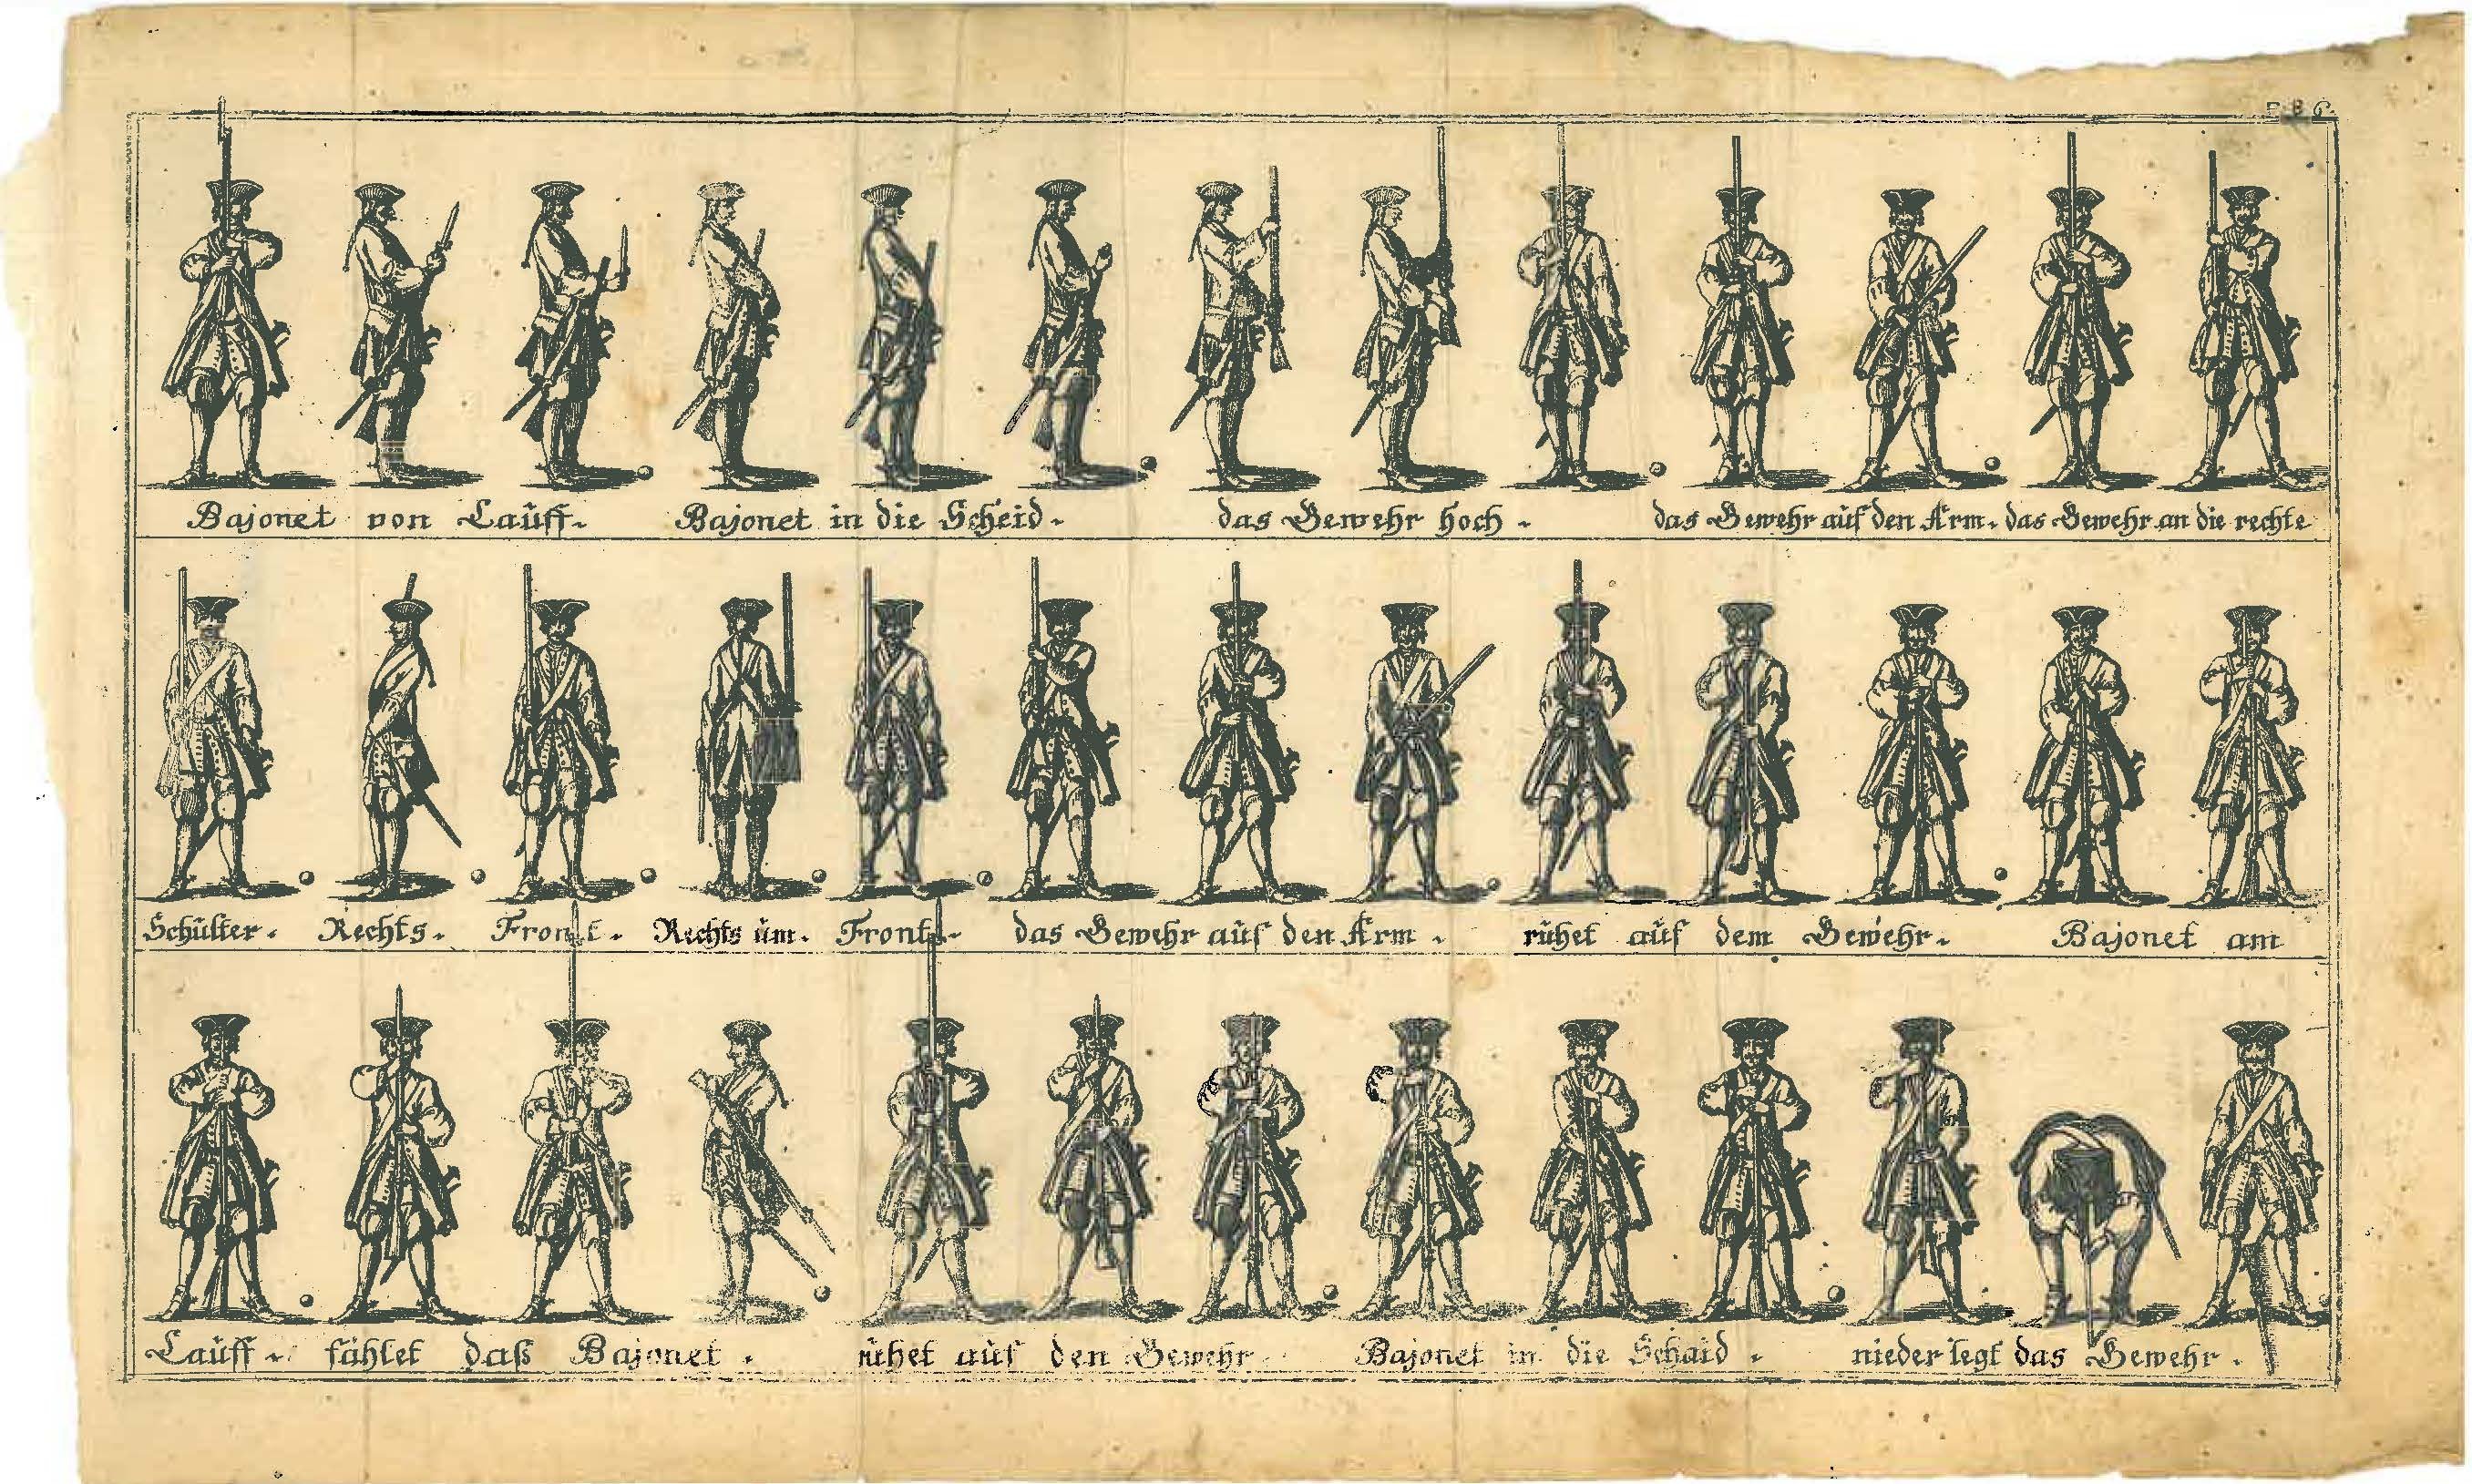 P. 86.
Bajonet von Lauff. Bajonet in die Scheid. das Gewehr hoch. das Gewehr auf den Arm. das Gewehr an die rechte
Schulter. Rechts. Front. Rechts um. Front. das Gewehr auf den Arm. ruhet auf dem Gewehr. Bajonet am
Lauff. fählet daß Bajonet. ruhet auf den Gewehr. Bajonet in die Schaid. nieder legt das Gewehr.